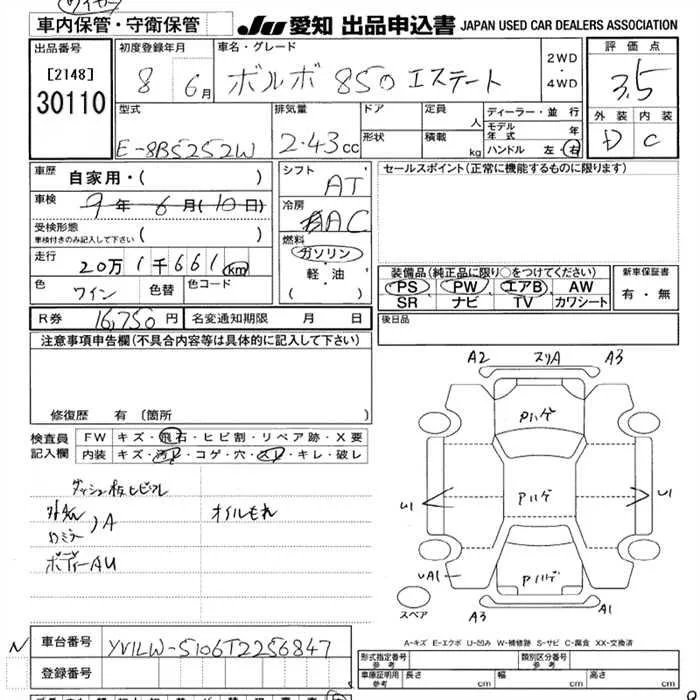 車内保管・守衛保管 JU 愛知 出品申込書 JAPAN USED CAR DEALERS ASSOCIATION
出品番号 初度登録年月 車名・グレード 2WD・4WD 評価点
[2148] 8 6月 ボルボ 850 エステート 3.5
30110
型式 排気量 ドア 定員 人 ディーラー・並行 外装 内装
E-8B5252W 2.43cc 形状 積載 kg モデル年式 年 D C
ハンドル 左・右
車歴 自家用・( ) シフト AT セールスポイント(正常に機能するものに限ります)
車検 9年6月(10日) 冷房 AC
受検形態
車検付きのみ記入して下さい 燃料 ガソリン
走行 20万1千661km 軽・油
( )
装備品(純正品に限り○をつけてください) 新車保証書
色 ワイン 色替 色コード PS PW エアB AW 有・無
SR ナビ TV カワシート
R券 16,750円 名変通知期限 月 日 後日品
注意事項申告欄(不具合内容等は具体的に記入して下さい)
A2 スリA A3
修復歴 有 (箇所
検査員 FW キズ・飛石・ヒビ割・リペア跡・X要
記入欄 内装 キズ・汚れ・コゲ・穴・スレ・キレ・破レ
Pハゲ
ダッシュ板ヒビワレ
A オイルもれ
ミラー
ボディーAU
U1 Pハゲ U1
UA1 Pハゲ
スペア A3 A1
A-キズ E-エクボ U-凹み W-補修跡 S-サビ C-腐食 XX-交換済
N 車台番号 YV1LW-5106T2256847
登録番号
形式指定番号 参考 類別区分番号 参考
車庫証明用 参考 長さ cm 幅 cm 高さ cm